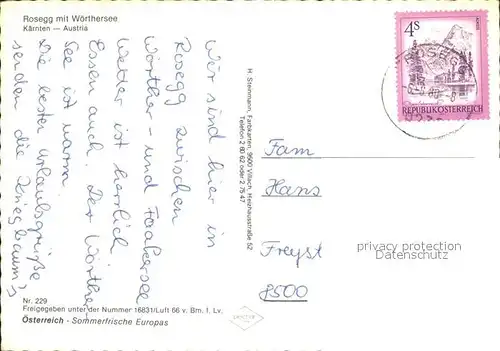 Rosegg mit Wörthersee
Kärnten — Austria
Wir sind hier in
Rosegg zwischen
Wörther- und Faakersee
Wetter ist herrlich
Essen auch. Der Wörther-
See ist warm.
Die besten Urlaubsgrüße
senden die
Nr. 229
Freigegeben unter der Nummer 16831/Luft 66 v. Bm. f. Lv.
Österreich - Sommerfrische Europas
H. Steinmann, Farbkarten, 9500 Villach, Heizhausstraße 52
Telefon 2 60 62 oder 2 75 47
4S
REPUBLIK ÖSTERREICH
ROSEGG
Fam
Hans
Freyst
8500
privacy protection
watermark